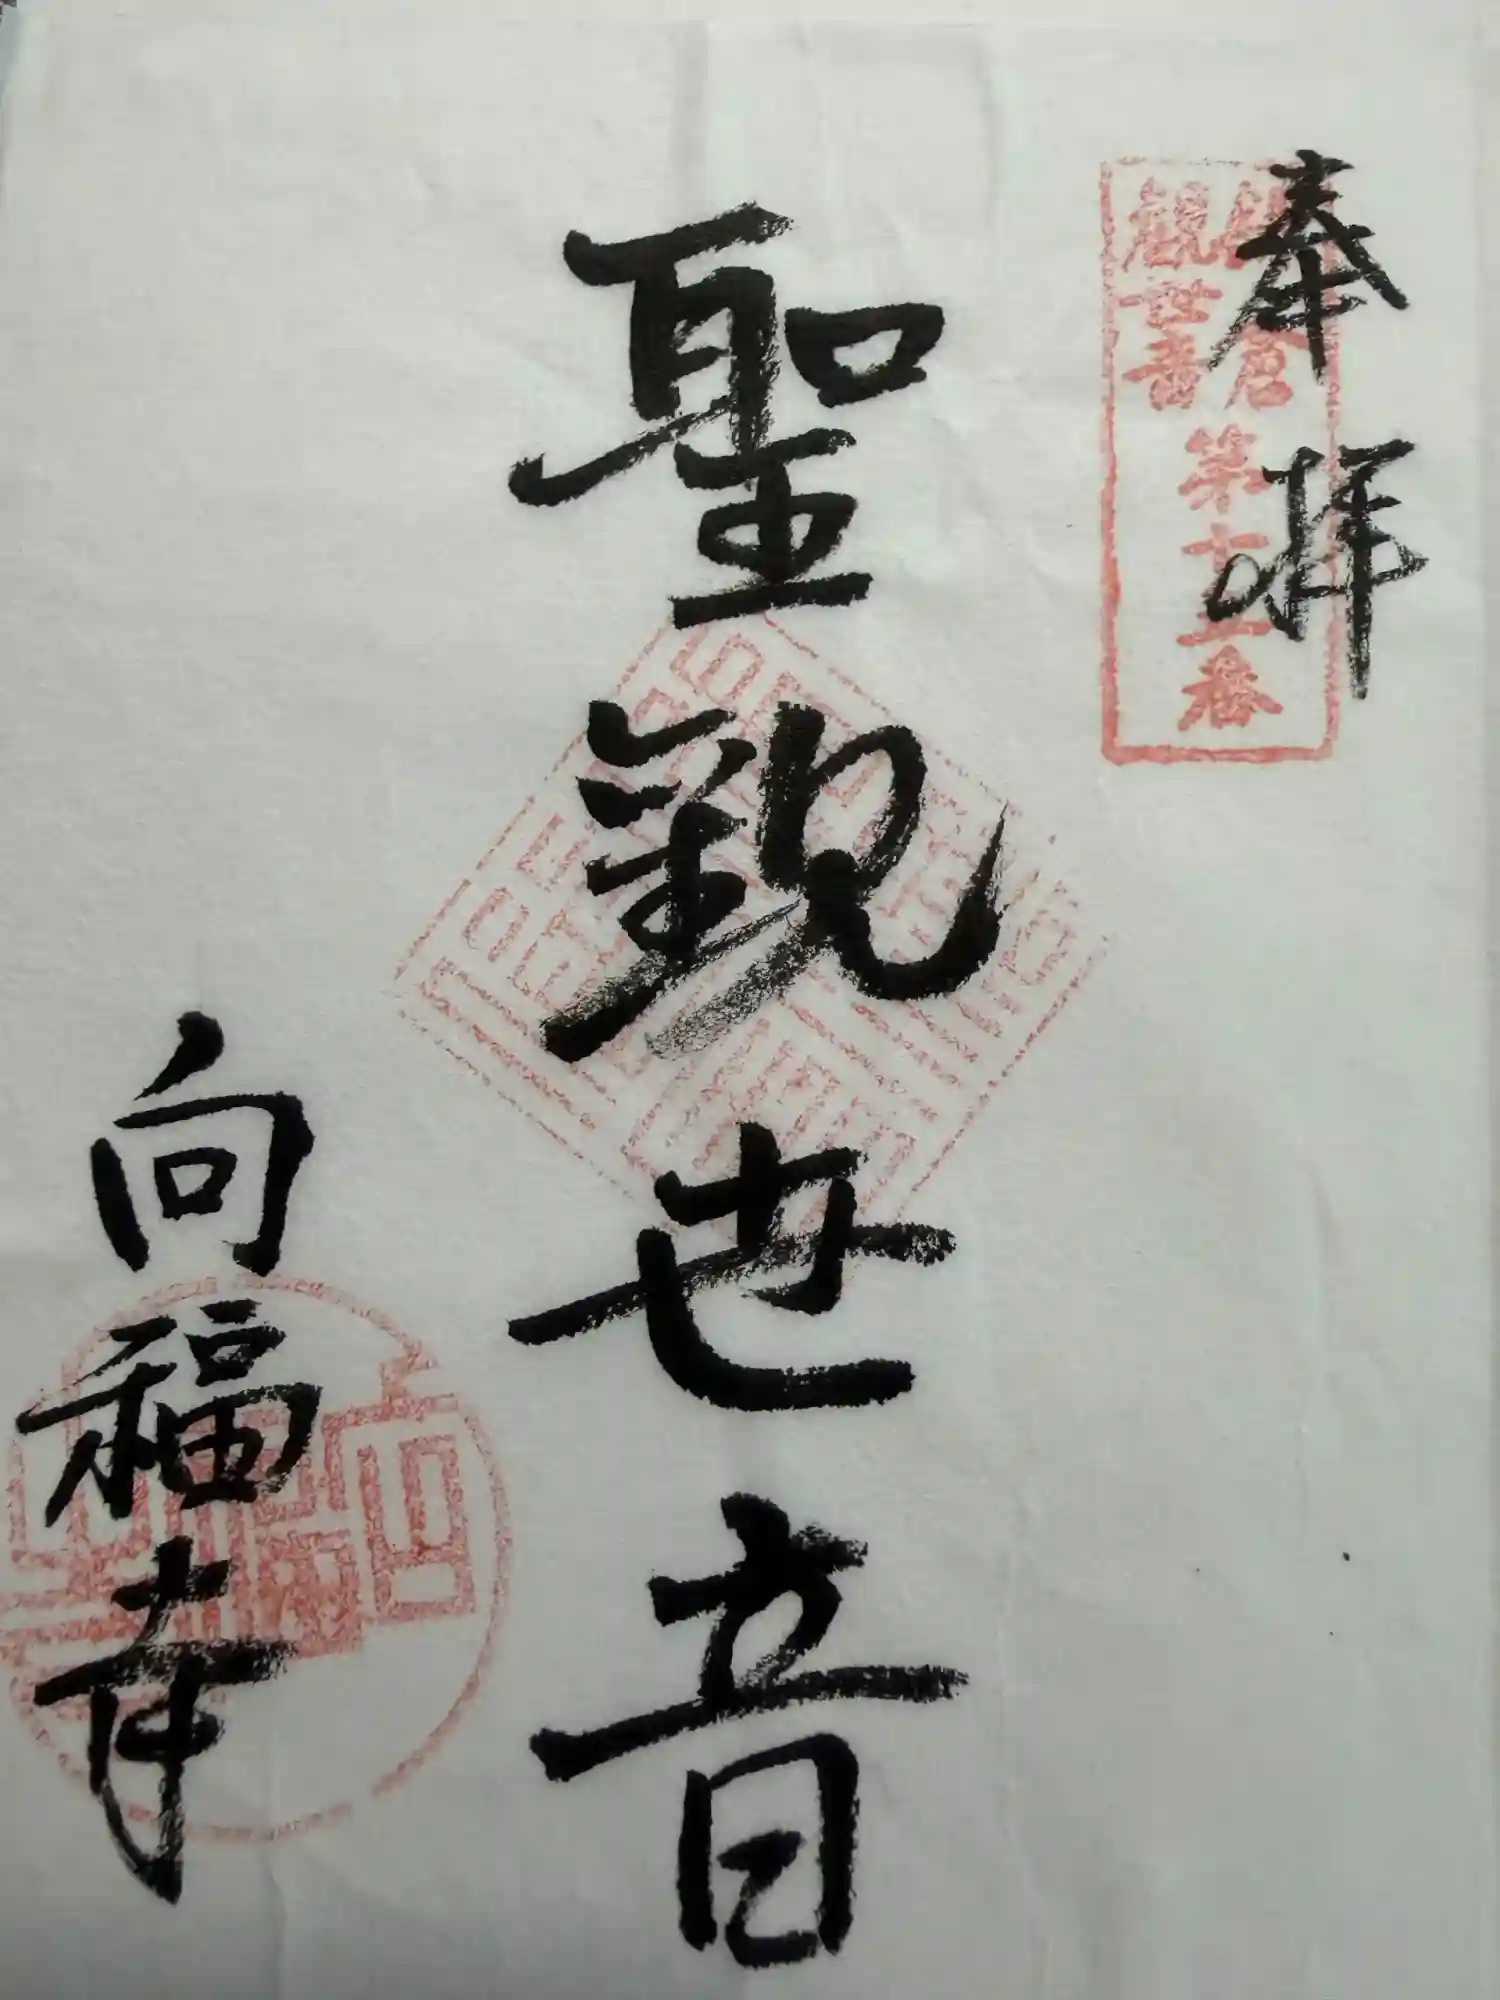 奉拝
鎌倉
観世音
第十五番
聖観世音
向福寺